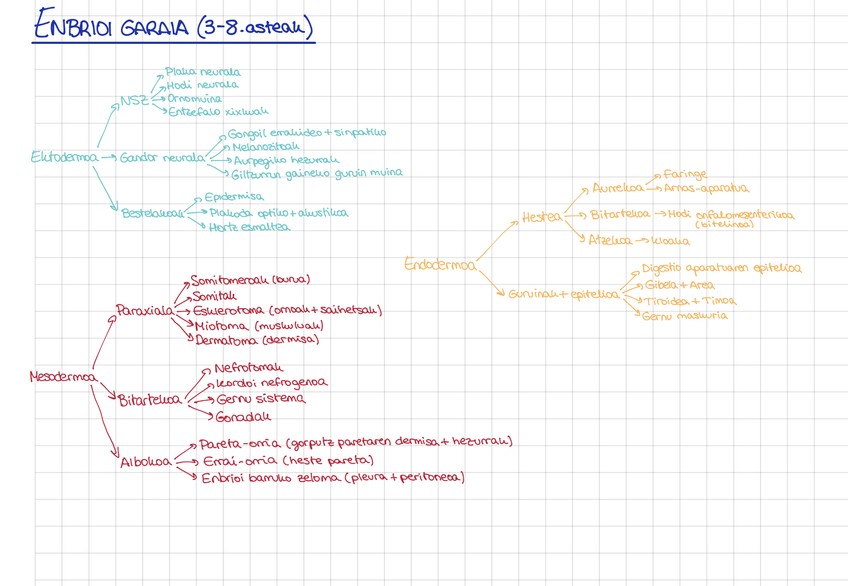 ENBRIOI GARAIA (3-8.asteak)
Plaka neurala
Hodi neurala
NSZ
Ornomuina
Entzefalo xixkuak
Ektodermoa
Gandor neurala
Gongoil errakideo + sinpatiko
Melanozitoak
Aurpegiko hezurrak
Giltzurrun gaineko guruin muina
Bestelakoak
Epidermisa
Plakoda optiko + akustikoa
Hortz esmaltea
Mesodermoa
Paraxiala
Somitomeroak (burua)
Somitak
Esklerotoma (ornoak + saihetsak)
Miotoma (muskuluak)
Dermatoma (dermisa)
Bitartekoa
Nefrotomak
Kordoi nefrogenoa
Gernu sistema
Gonadak
Albokoa
Pareta-orria (gorputz paretaren dermisa + hezurrak)
Errai-orria (heste pareta)
Enbrioi barruko zeloma (pleura + peritoneoa)
Endodermoa
Hestea
Aurrekoa
Faringe
Arnas-aparatua
Bitartekoa
Hodi onfalomesenterikoa
(bitelinoa)
Atzekoa
Kloaka
Guruinak + epitelioa
Digestio aparatuaren epitelioa
Gibela + Area
Tiroidea + Timoa
Gernu maskuria